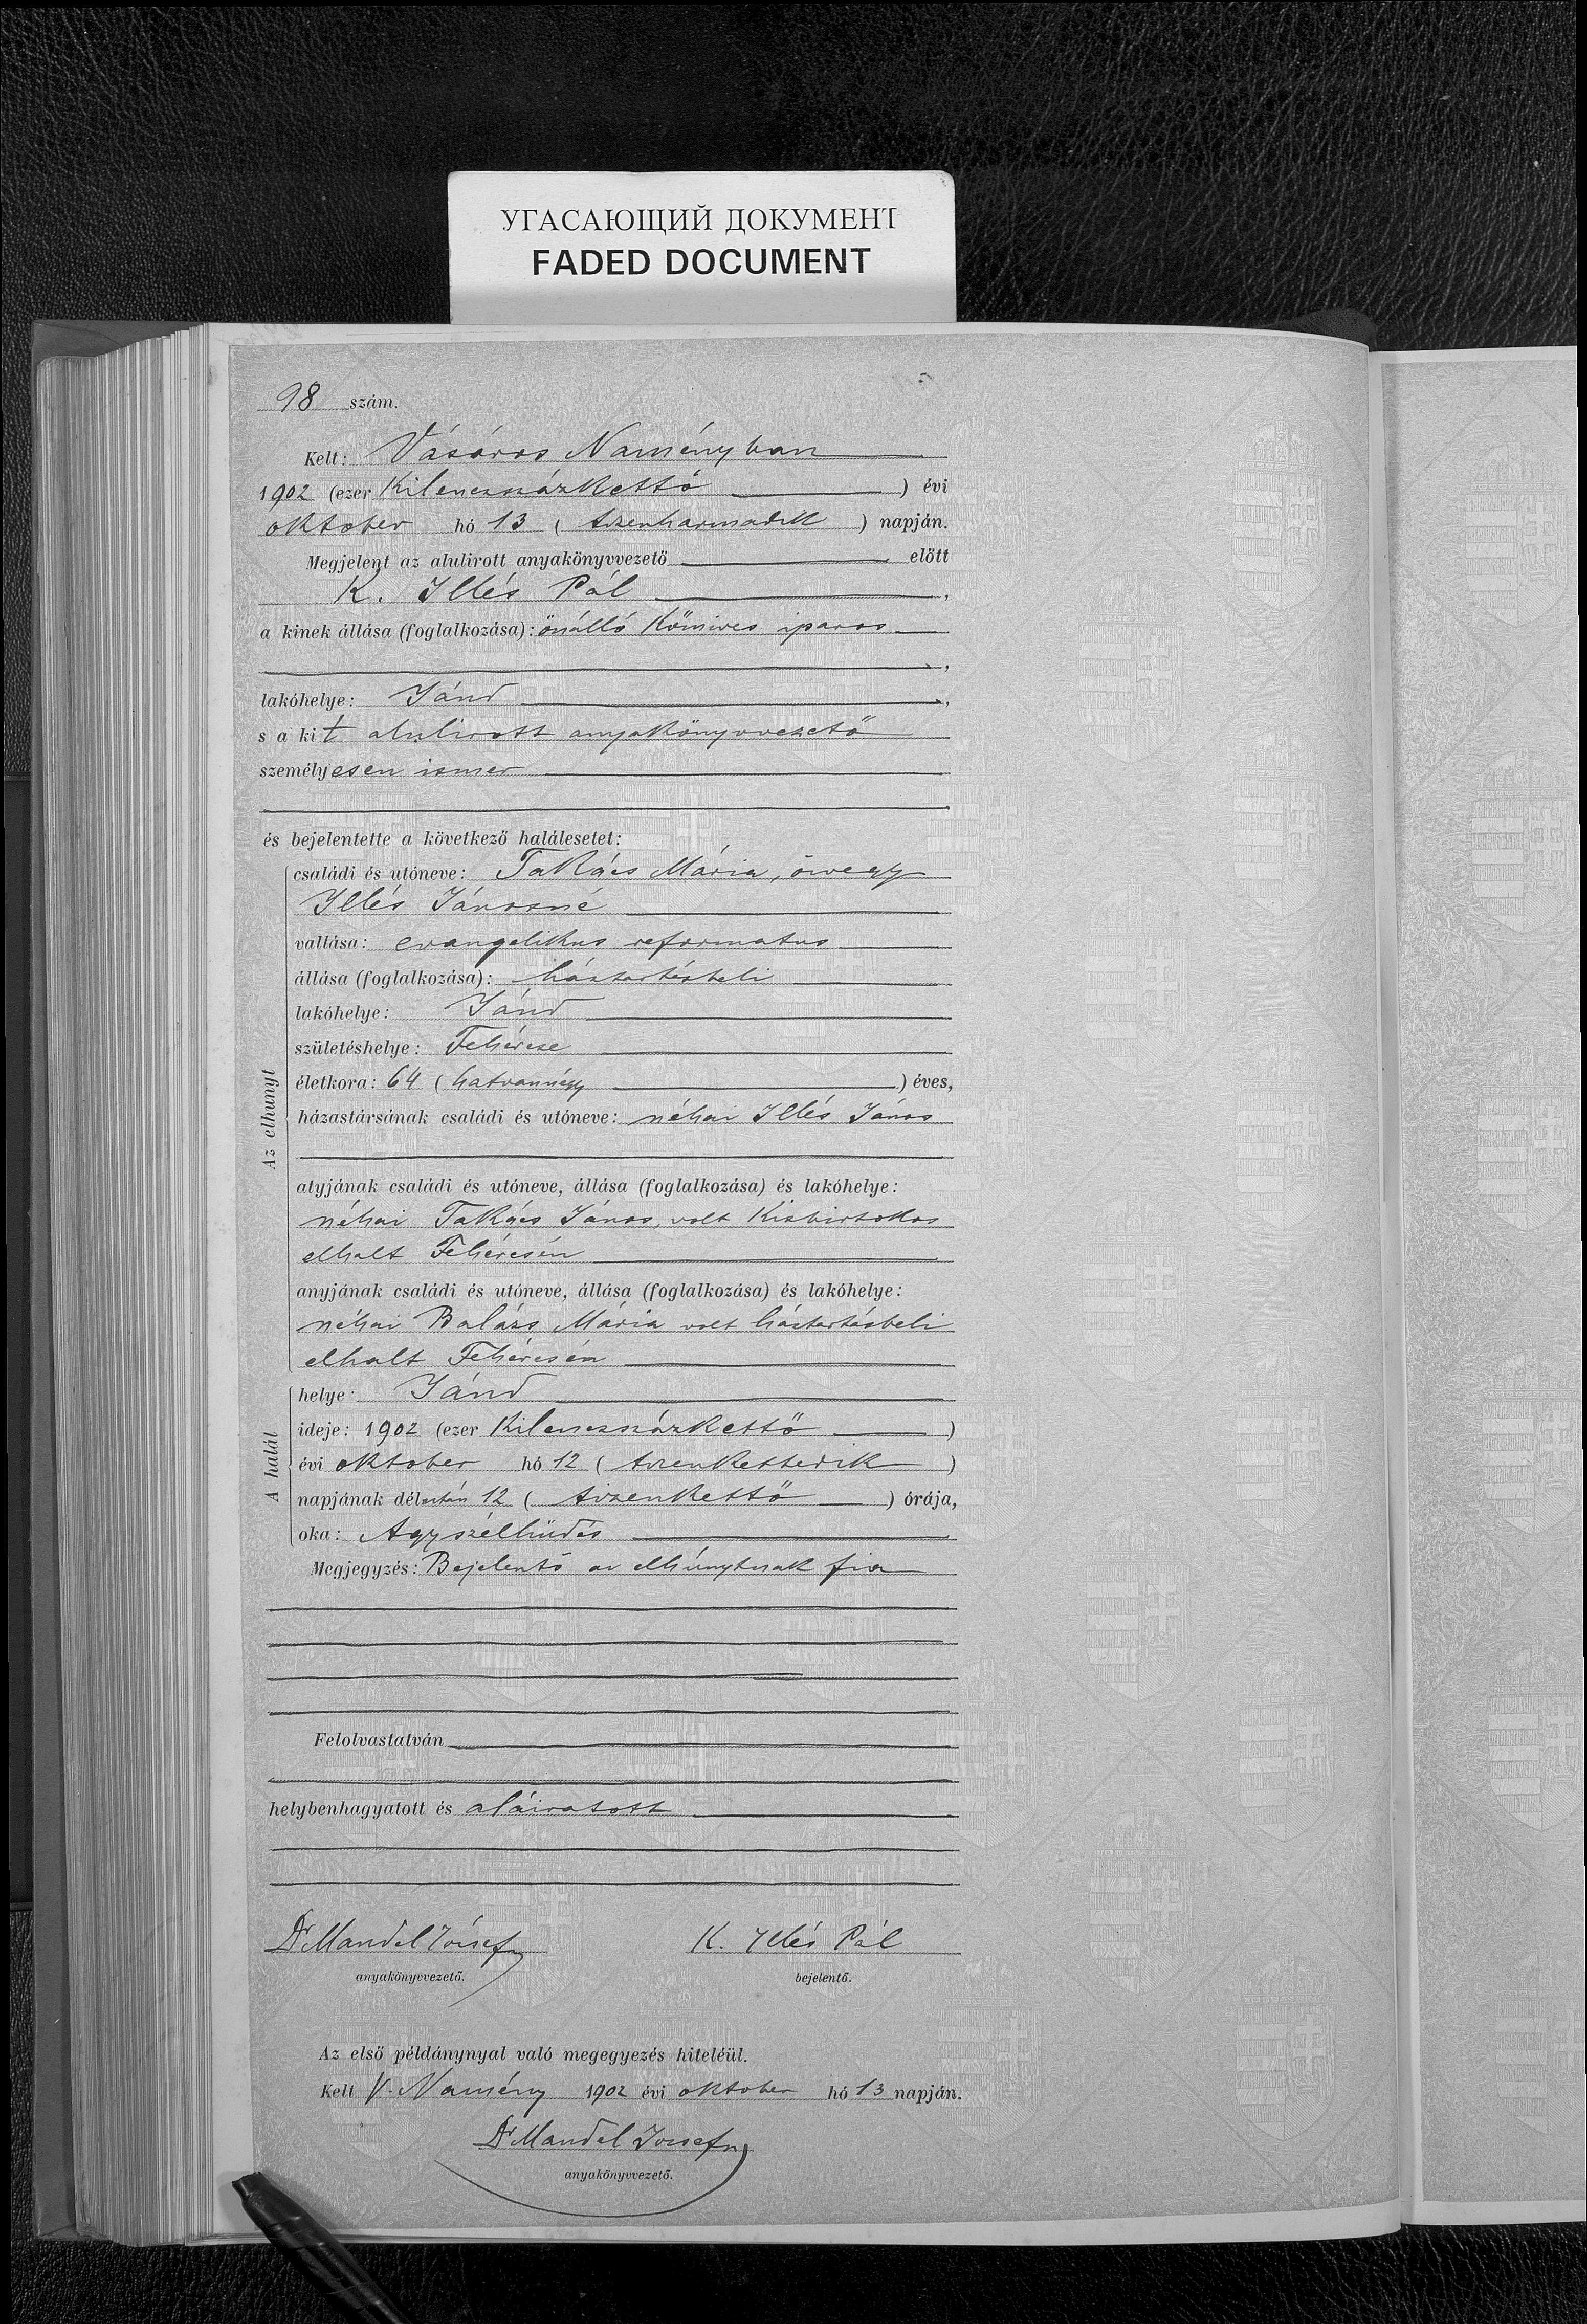 УГАСАЮЩИЙ ДОКУМЕНТ
FADED DOCUMENT
98 szám.
Kelt: Vásáros Naményban
1902 (ezer Kilencszázkettő ) évi
október hó 13 ( tizenharmadik ) napján.
Megjelent az alulirott anyakönyvvezető előtt
K. Illés Pál ,
a kinek állása (foglalkozása): önálló Kőmives iparos
,
lakóhelye: Jánd ,
s a kit alulirott anyakönyvvezető
személyesen ismer
és bejelentette a következő halálesetet:
Az elhunyt
családi és utóneve: Takács Mária, özvegy
Illés Jánosné
vallása: evangelikus reformatus
állása (foglalkozása): háztartásbeli
lakóhelye: Jánd
születéshelye: Fehércse
életkora: 64 ( hatvannégy ) éves,
házastársának családi és utóneve: néhai Illés János
atyjának családi és utóneve, állása (foglalkozása) és lakóhelye:
néhai Takács János, volt Kisbirtokos
elhalt Fehércsén
anyjának családi és utóneve, állása (foglalkozása) és lakóhelye:
néhai Balázs Mária volt háztartásbeli
elhalt Fehércsén
A halál
helye: Jánd
ideje: 1902 (ezer Kilencszázkettő )
évi október hó 12 ( tizenkettedik )
napjának délután 12 ( tizenkettő ) órája,
oka: Agyszélhüdés
Megjegyzés: Bejelentő az elhúnytnak fia
Felolvastatván
helybenhagyatott és aláiratott
Dr Mandel József K. Illés Pál
anyakönyvvezető. bejelentő.
Az első példánynyal való megegyezés hiteléül.
Kelt V. Namény 1902 évi október hó 13 napján.
Dr Mandel József
anyakönyvvezető.